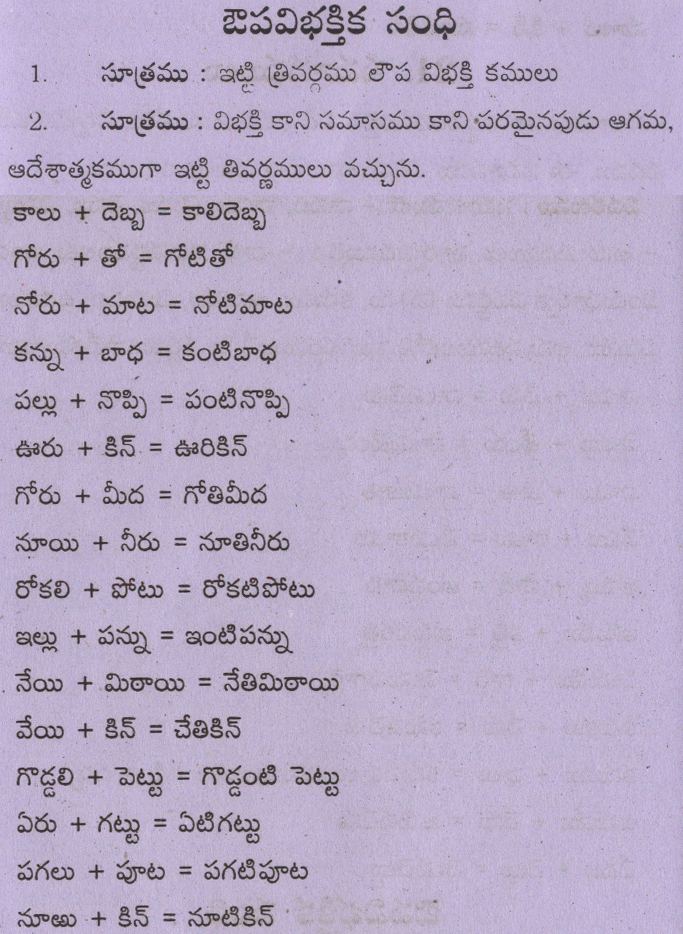 ఔపవిభక్తిక సంధి
1. సూత్రము : ఇట్టి త్రివర్గము లౌప విభక్తి కములు
2. సూత్రము : విభక్తి కాని సమాసము కాని పరమైనపుడు ఆగమ,
ఆదేశాత్మకముగా ఇట్టి తివర్ణములు వచ్చును.
కాలు + దెబ్బ = కాలిదెబ్బ
గోరు + తో = గోటితో
నోరు + మాట = నోటిమాట
కన్ను + బాధ = కంటిబాధ
పల్లు + నొప్పి = పంటినొప్పి
ఊరు + కిన్ = ఊరికిన్
గోరు + మీద = గోతిమీద
నూయి + నీరు = నూతినీరు
రోకలి + పోటు = రోకటిపోటు
ఇల్లు + పన్ను = ఇంటిపన్ను
నేయి + మిఠాయి = నేతిమిఠాయి
వేయి + కిన్ = చేతికిన్
గొడ్డలి + పెట్టు = గొడ్డంటి పెట్టు
ఏరు + గట్టు = ఏటిగట్టు
పగలు + పూట = పగటిపూట
నూఱు + కిన్ = నూటికిన్